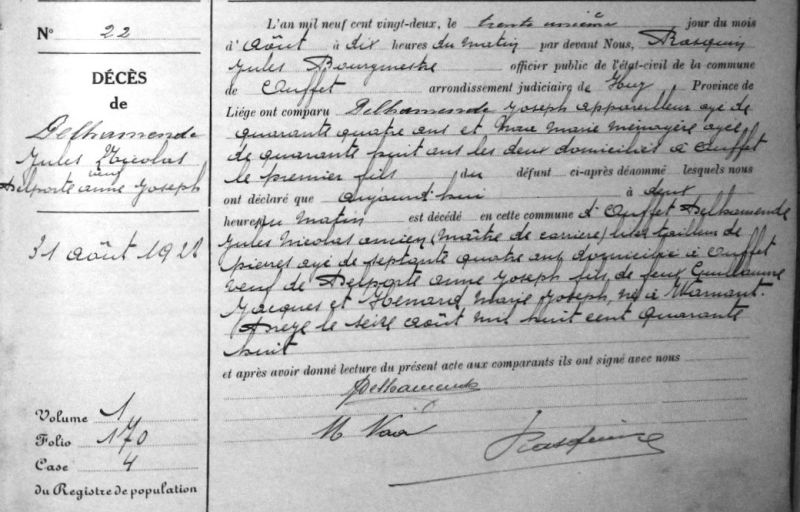 N° 22
DÉCÈS
de
Delhamende
Jules Nicolas
veuf
Delporte anne Joseph
31 août 1922
Volume 1
Folio 170
Case 4
du Registre de population
L'an mil neuf cent vingt-deux, le trente unième jour du mois
d'août à dix heures du matin par devant Nous, Rasquin
Jules Bourgmestre officier public de l'état-civil de la commune
de Ouffet arrondissement judiciaire de Huy Province de
Liége ont comparu Delhamende Joseph appareilleur agé de
quarante quatre ans et Marie ménagère agée
de quarante huit ans les deux domiciliés à Ouffet
le premier fils du défunt ci-après dénommé lesquels nous
ont déclaré que aujourd'hui à deux
heures du matin est décédé en cette commune d'Ouffet Delhamende
Jules Nicolas ancien (maître de carrière) tailleur de
pierres agé de septante quatre ans domicilié à Ouffet
veuf de Delporte anne Joseph fils de feux Guillaume
Jacques et Henard Marie Joseph, né à Warnant
Dreye le seize août mil huit cent quarante
huit
et après avoir donné lecture du présent acte aux comparants ils ont signé avec nous
Delhamende
M
Rasquin